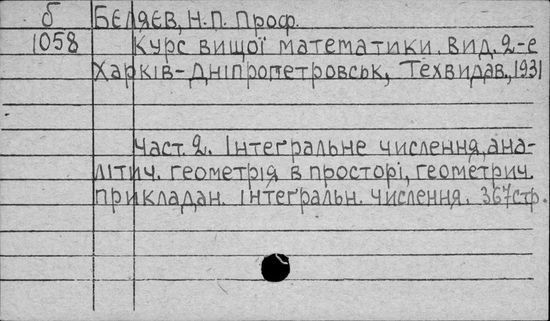 б БЄЛЯЄВ, Н.П. Проф.
1058 Курс вищої математики. Вид. 2-е
Харків-Дніпропетровськ, Техвидав, 1931
Част. 2. Інтеґральне числення, ана-
літич. геометрія в просторі, геометрич.
прикладан. інтеґральн. числення. 367стр.